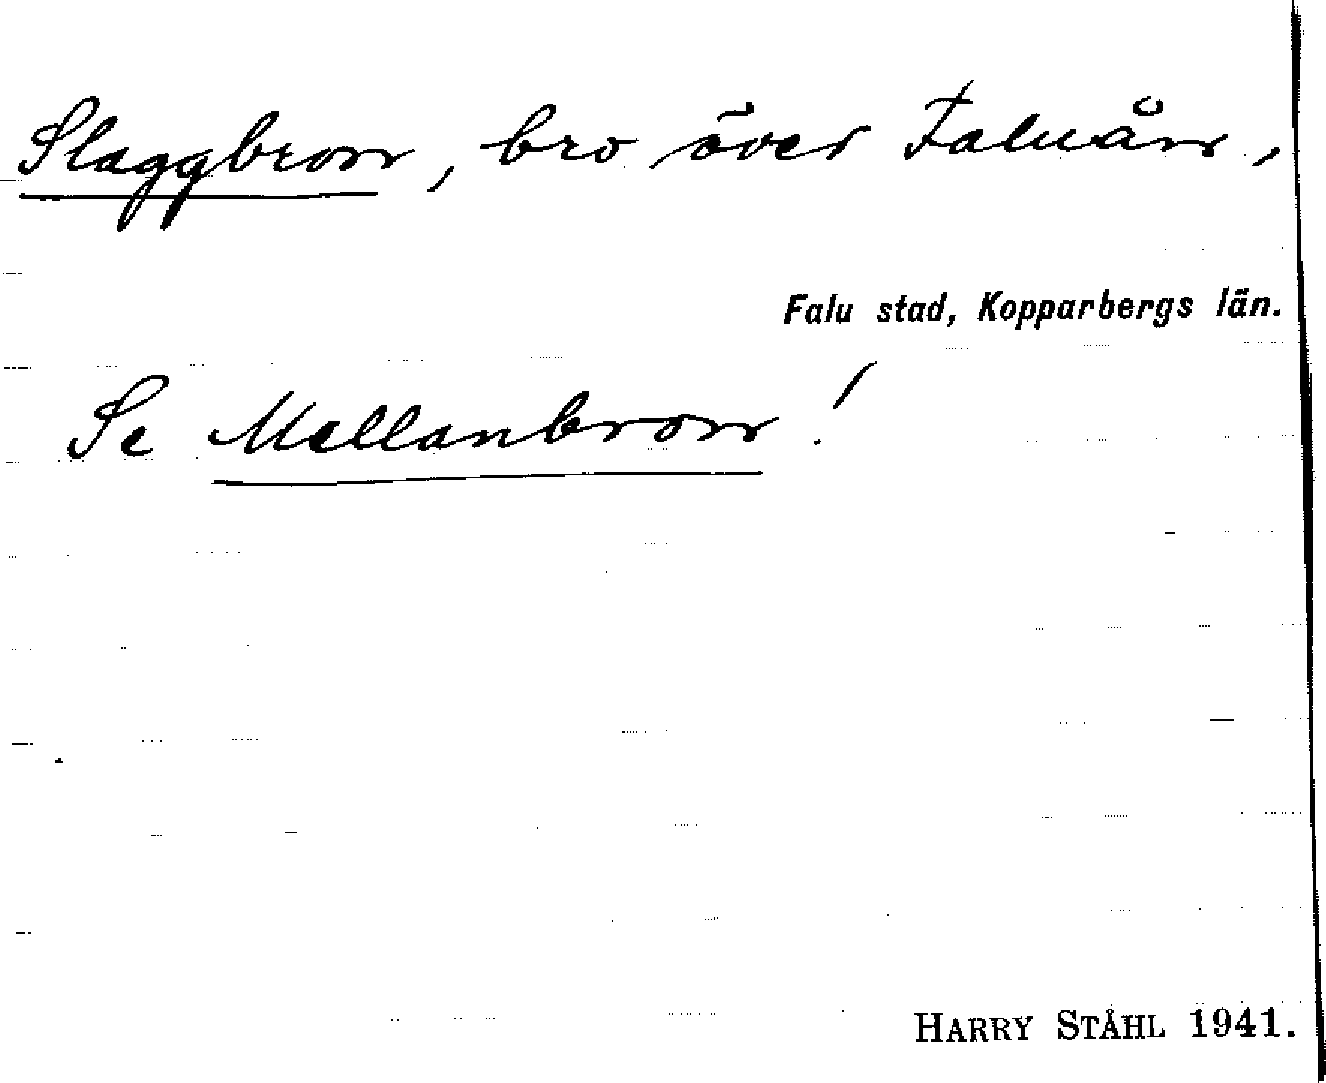 Slaggbron, bro över Faluån,
Falu stad, Kopparbergs län.
Se Mellanbron!
HARRY STÅHL 1941.